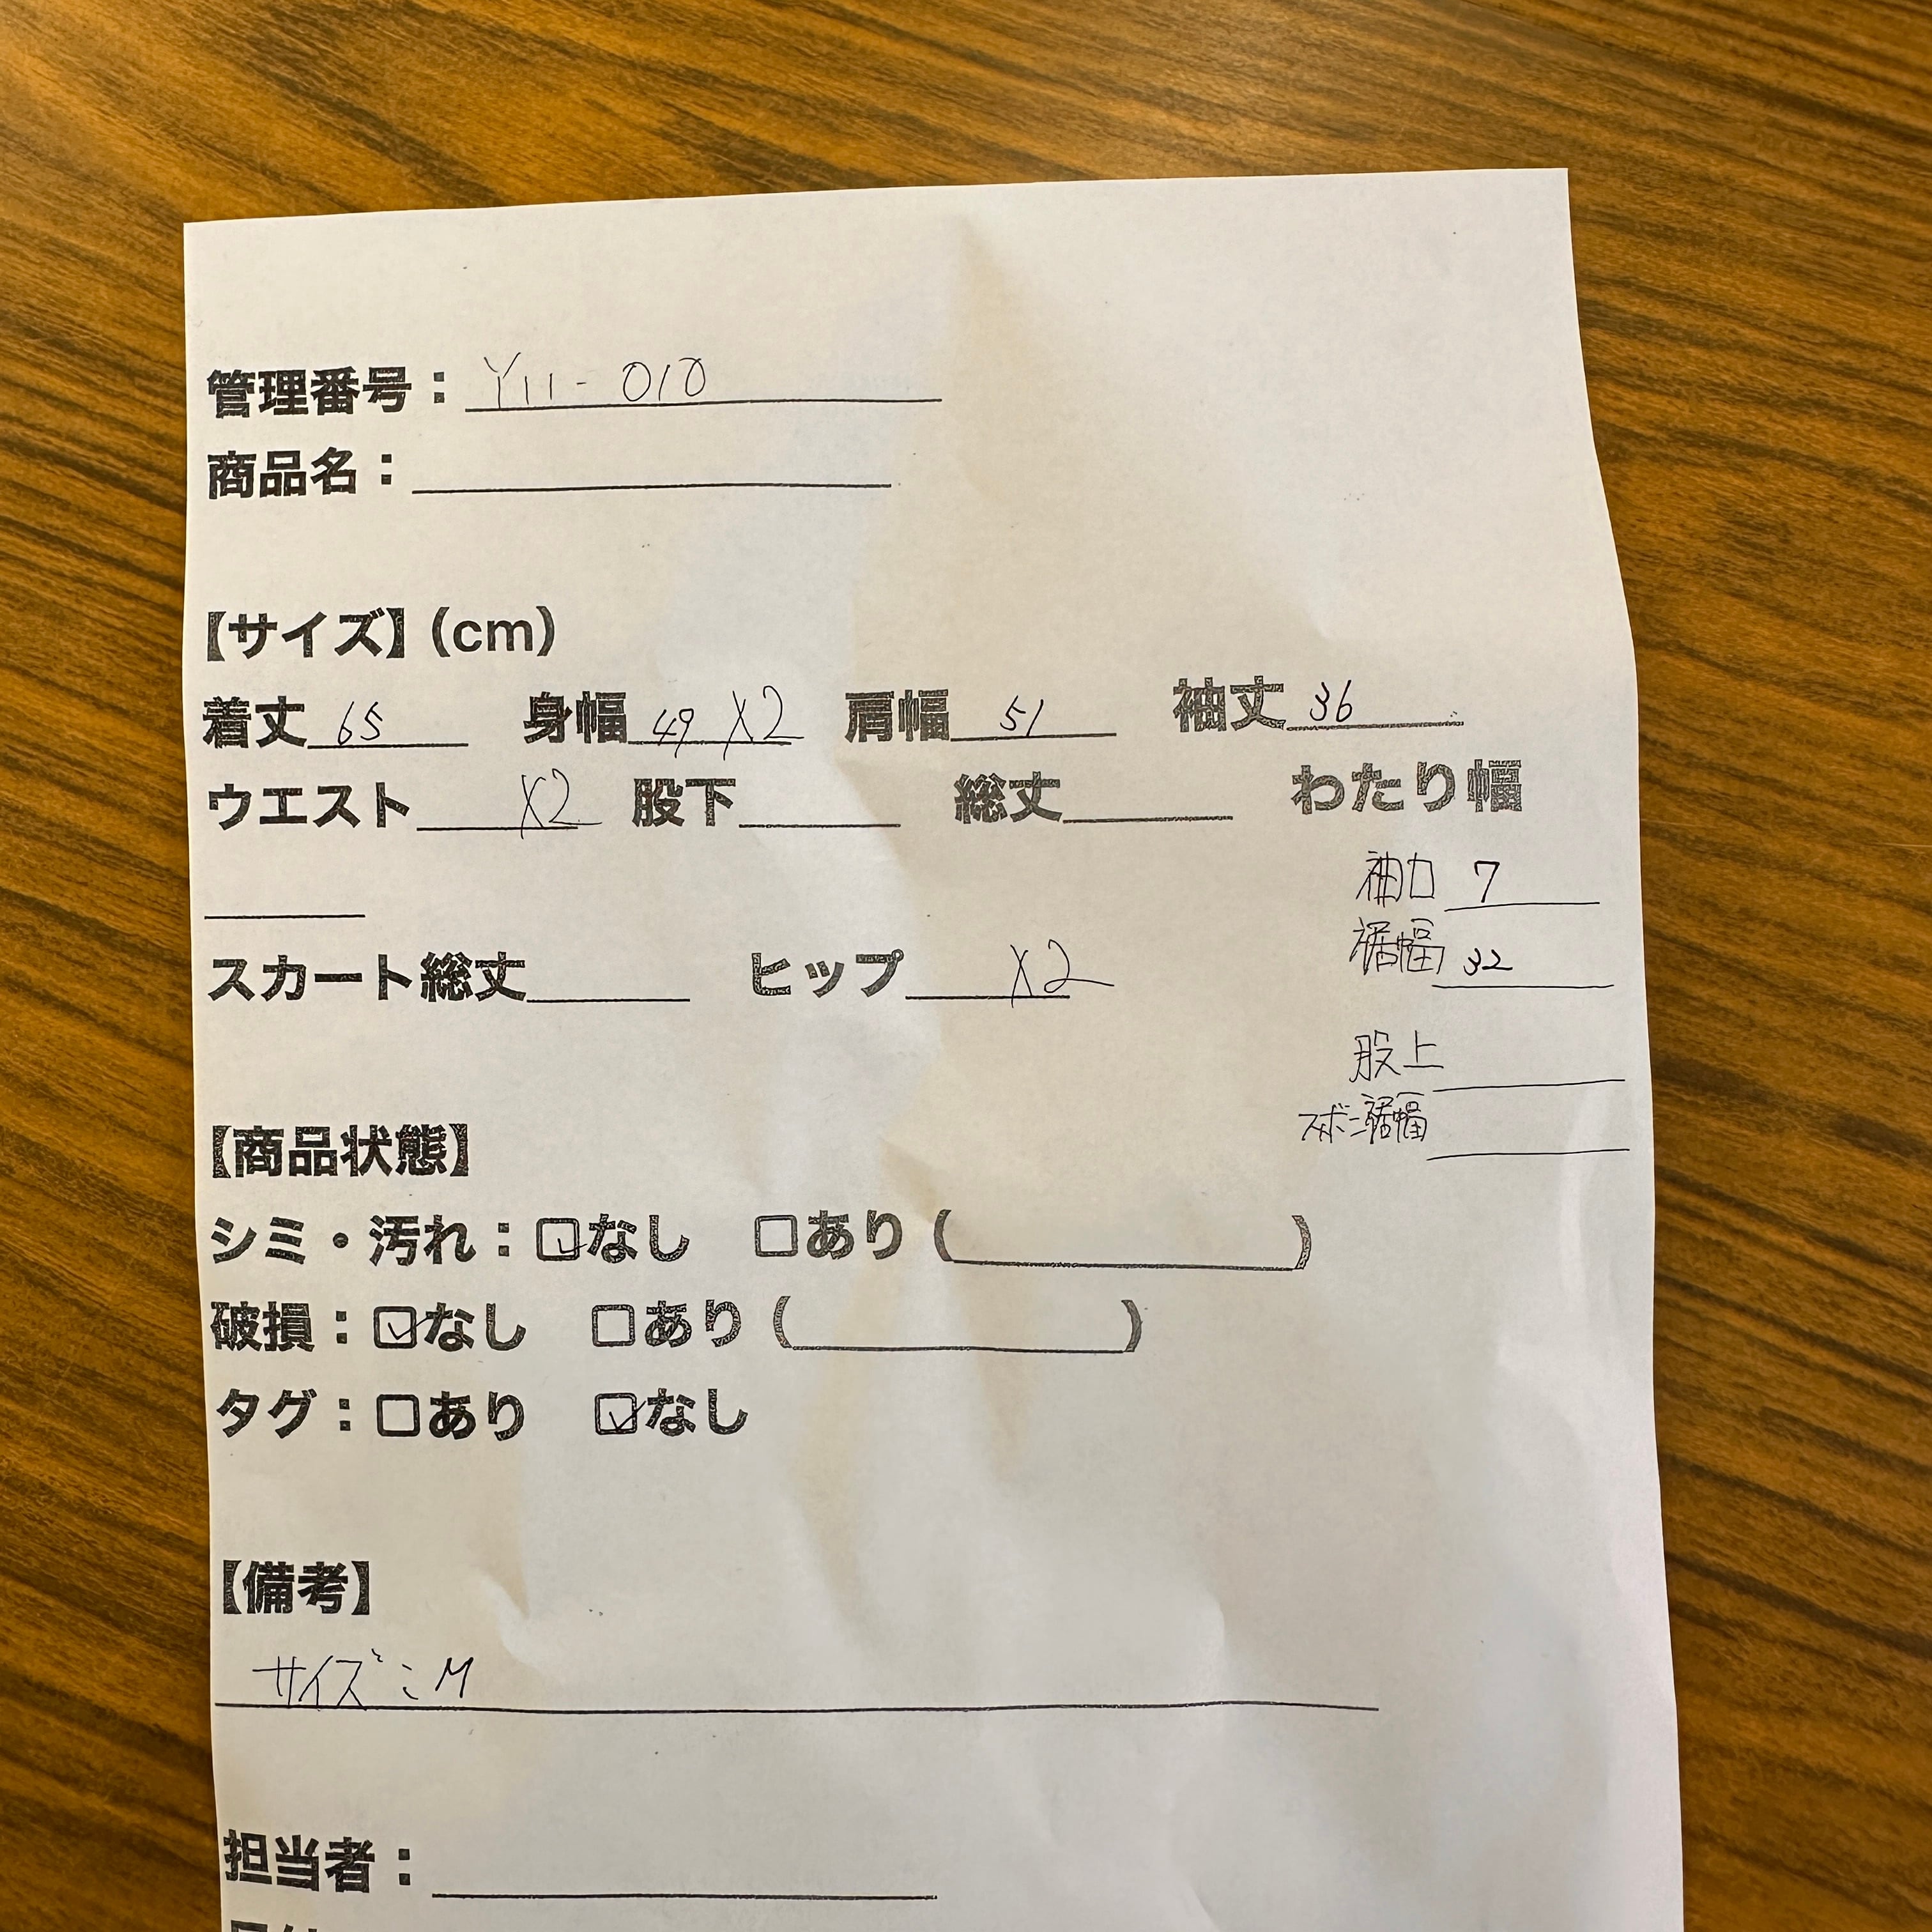 管理番号：Y11-010
商品名：
【サイズ】（cm）
着丈 65 身幅 49 X2 肩幅 51 袖丈 36
ウエスト X2 股下 総丈 わたり幅
袖口 7
裾幅 32
スカート総丈 ヒップ X2
股上
ズボン裾幅
【商品状態】
シミ・汚れ：☑なし □あり（ ）
破損：☑なし □あり（ ）
タグ：□あり ☑なし
【備考】
サイズ：M
担当者：